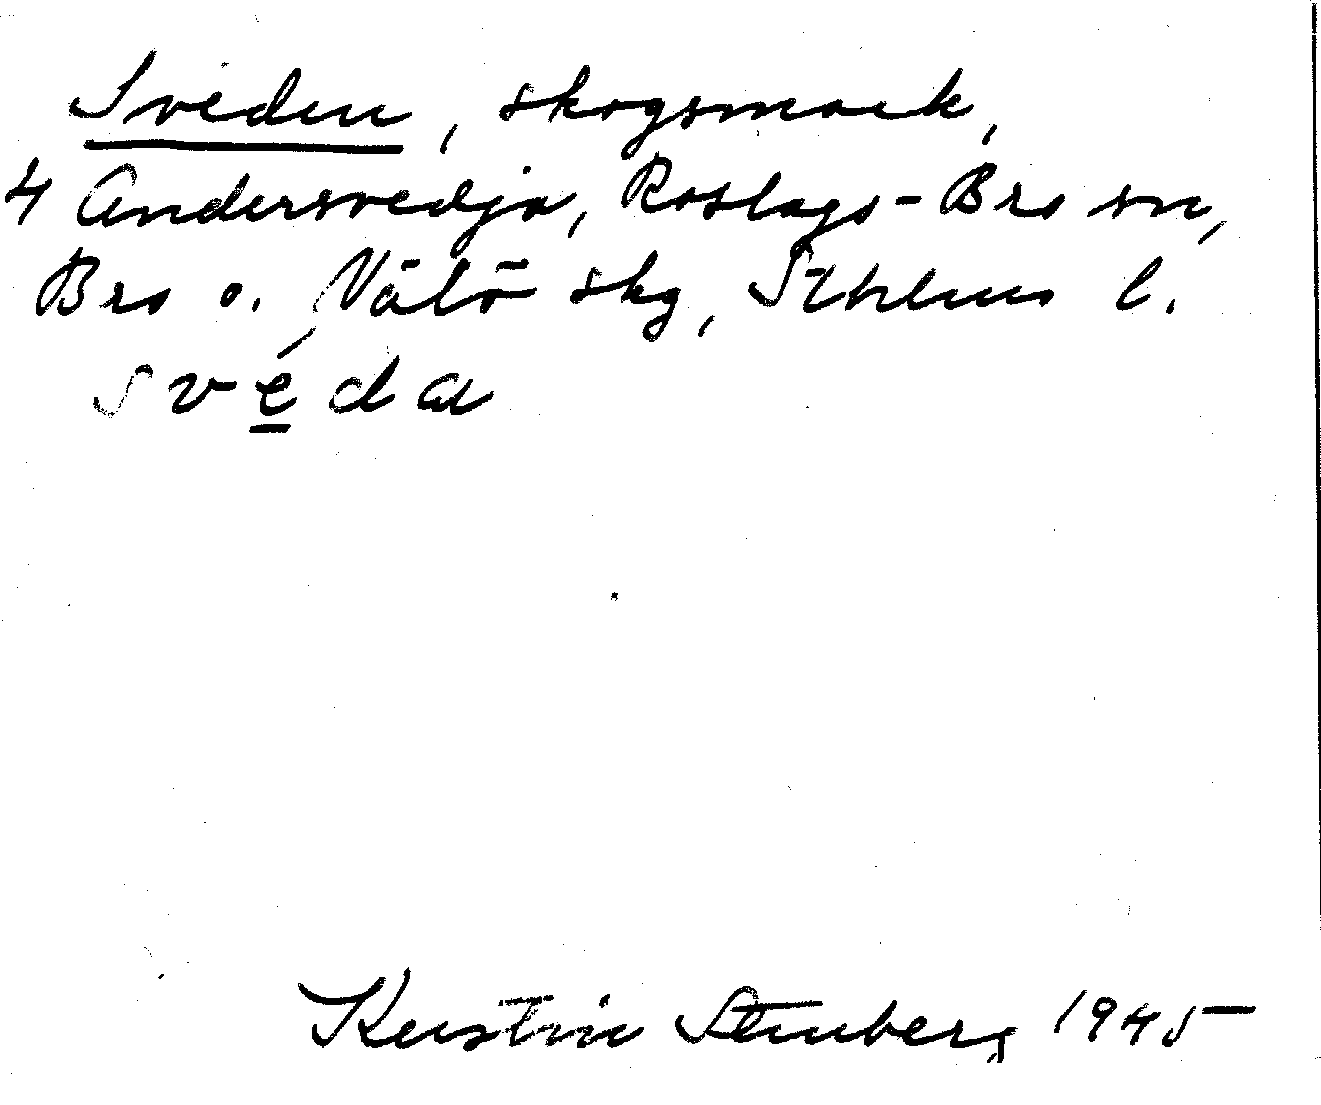 Sveden, skogsmark,
4 Andersvedja, Roslags-Bro sn,
Bro o. Vätö skg, Sthlms l.
svéda
Kerstin Stenberg 1945